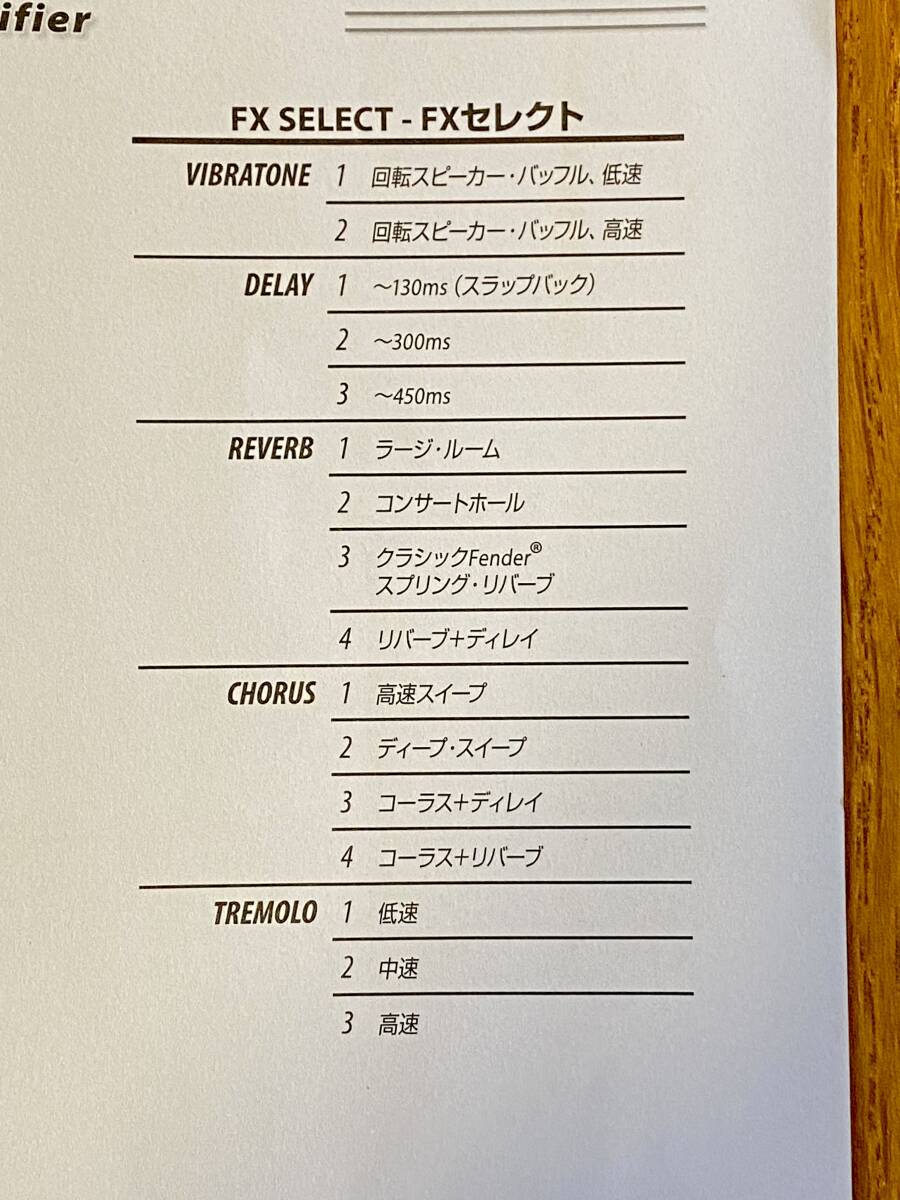 ifier
FX SELECT - FXセレクト
VIBRATONE 1 回転スピーカー・バッフル、低速
2 回転スピーカー・バッフル、高速
DELAY 1 ～130ms（スラップバック）
2 ～300ms
3 ～450ms
REVERB 1 ラージ・ルーム
2 コンサートホール
3 クラシックFender®
スプリング・リバーブ
4 リバーブ＋ディレイ
CHORUS 1 高速スイープ
2 ディープ・スイープ
3 コーラス＋ディレイ
4 コーラス＋リバーブ
TREMOLO 1 低速
2 中速
3 高速